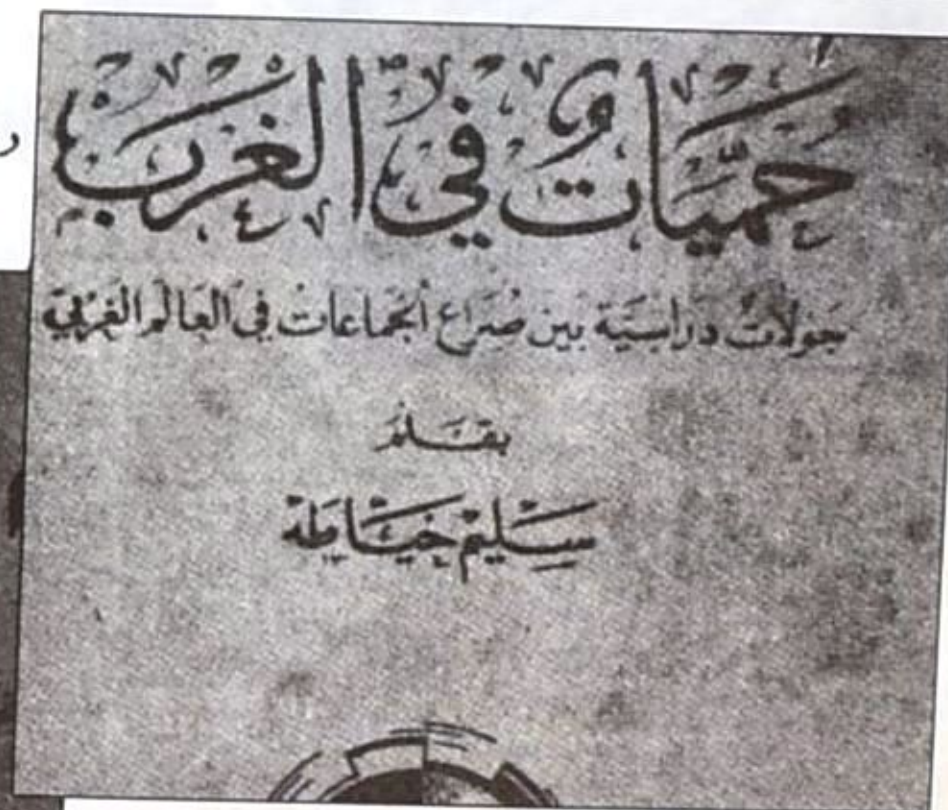 حُمّيَاتٌ في الغَرب
جَولاتٌ دراسيَّة بين صِرَاع الجَماعات في العَالم الغَربي
بقَلم
سَليم خيَاطه